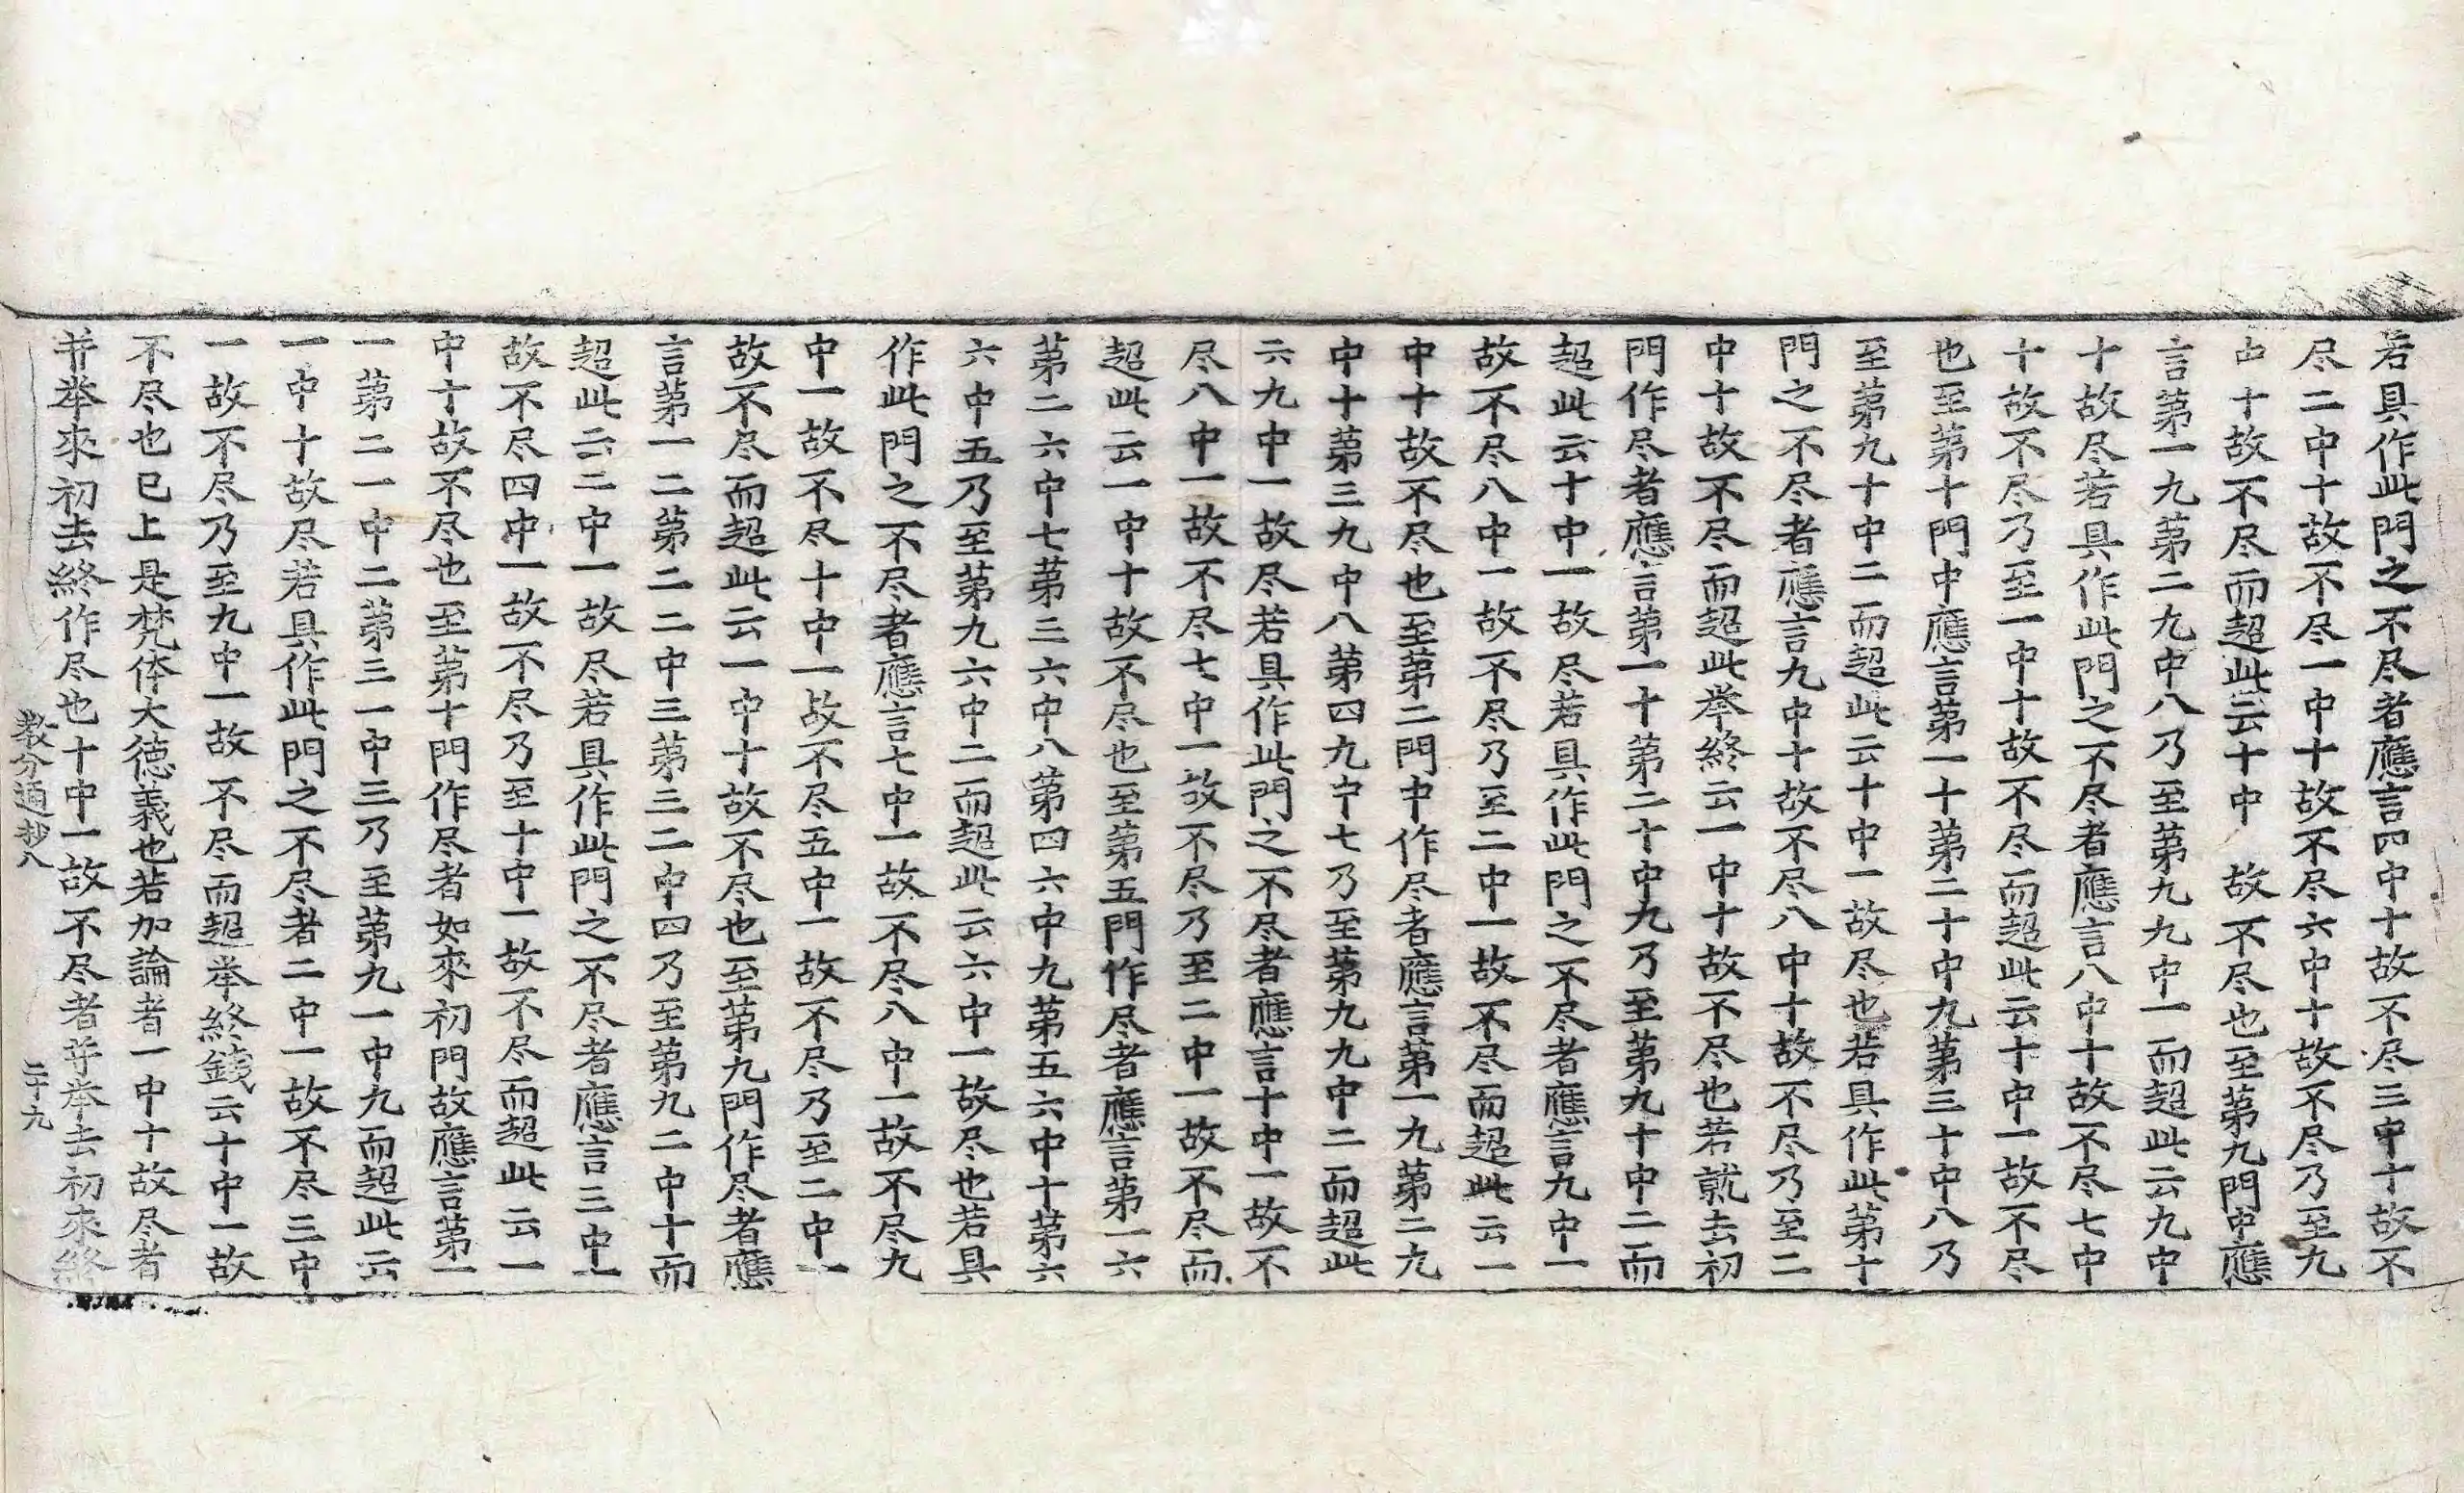 若具作此門之不尽者應言四中十故不尽三中十故不
尽二中十故不尽一中十故不尽六中十故不尽乃至九
中十故不尽而超此云十中 故不尽也至第九門中應
言第一九第二九中八乃至第九九中一而超此云九中
十故尽若具作此門之不尽者應言八中十故不尽七中
十故不尽乃至一中十故不尽而超此云十中一故不尽
也至第十門中應言第一十第二十中九第三十中八乃
至第九十中二而超此云十中一故尽也若具作此第十
門之不尽者應言九中十故不尽八中十故不尽乃至二
中十故不尽而超此举終云一中十故不尽也若就去初
門作尽者應言第一十第二十中九乃至第九十中二而
超此云十中一故尽若具作此門之不尽者應言九中一
故不尽八中一故不尽乃至二中一故不尽而超此云一
中十故不尽也至第二門中作尽者應言第一九第二九
中十第三九中八第四九中七乃至第九九中二而超此
云九中一故尽若具作此門之不尽者應言十中一故不
尽八中一故不尽七中一故不尽乃至二中一故不尽而
超此云一中十故不尽也至第五門作尽者應言第一六
第二六中七第三六中八第四六中九第五六中十第六
六中五乃至第九六中二而超此云六中一故尽也若具
作此門之不尽者應言七中一故不尽八中一故不尽九
中一故不尽十中一故不尽五中一故不尽乃至二中一
故不尽而超此云一中十故不尽也至第九門作尽者應
言第一二第二二中三第三二中四乃至第九二中十而
超此云二中一故尽若具作此門之不尽者應言三中一
故不尽四中一故不尽乃至十中一故不尽而超此云一
中十故不尽也至第十門作尽者如來初門故應言第一
一第二一中二第三一中三乃至第九一中九而超此云
一中十故尽若具作此門之不尽者二中一故不尽三中
一故不尽乃至九中一故不尽而超举終錢云十中一故
不尽也已上是梵体大德義也若加論者一中十故尽者
并举來初去終作尽也十中一故不尽者并举去初來終
教分通抄八 二十九